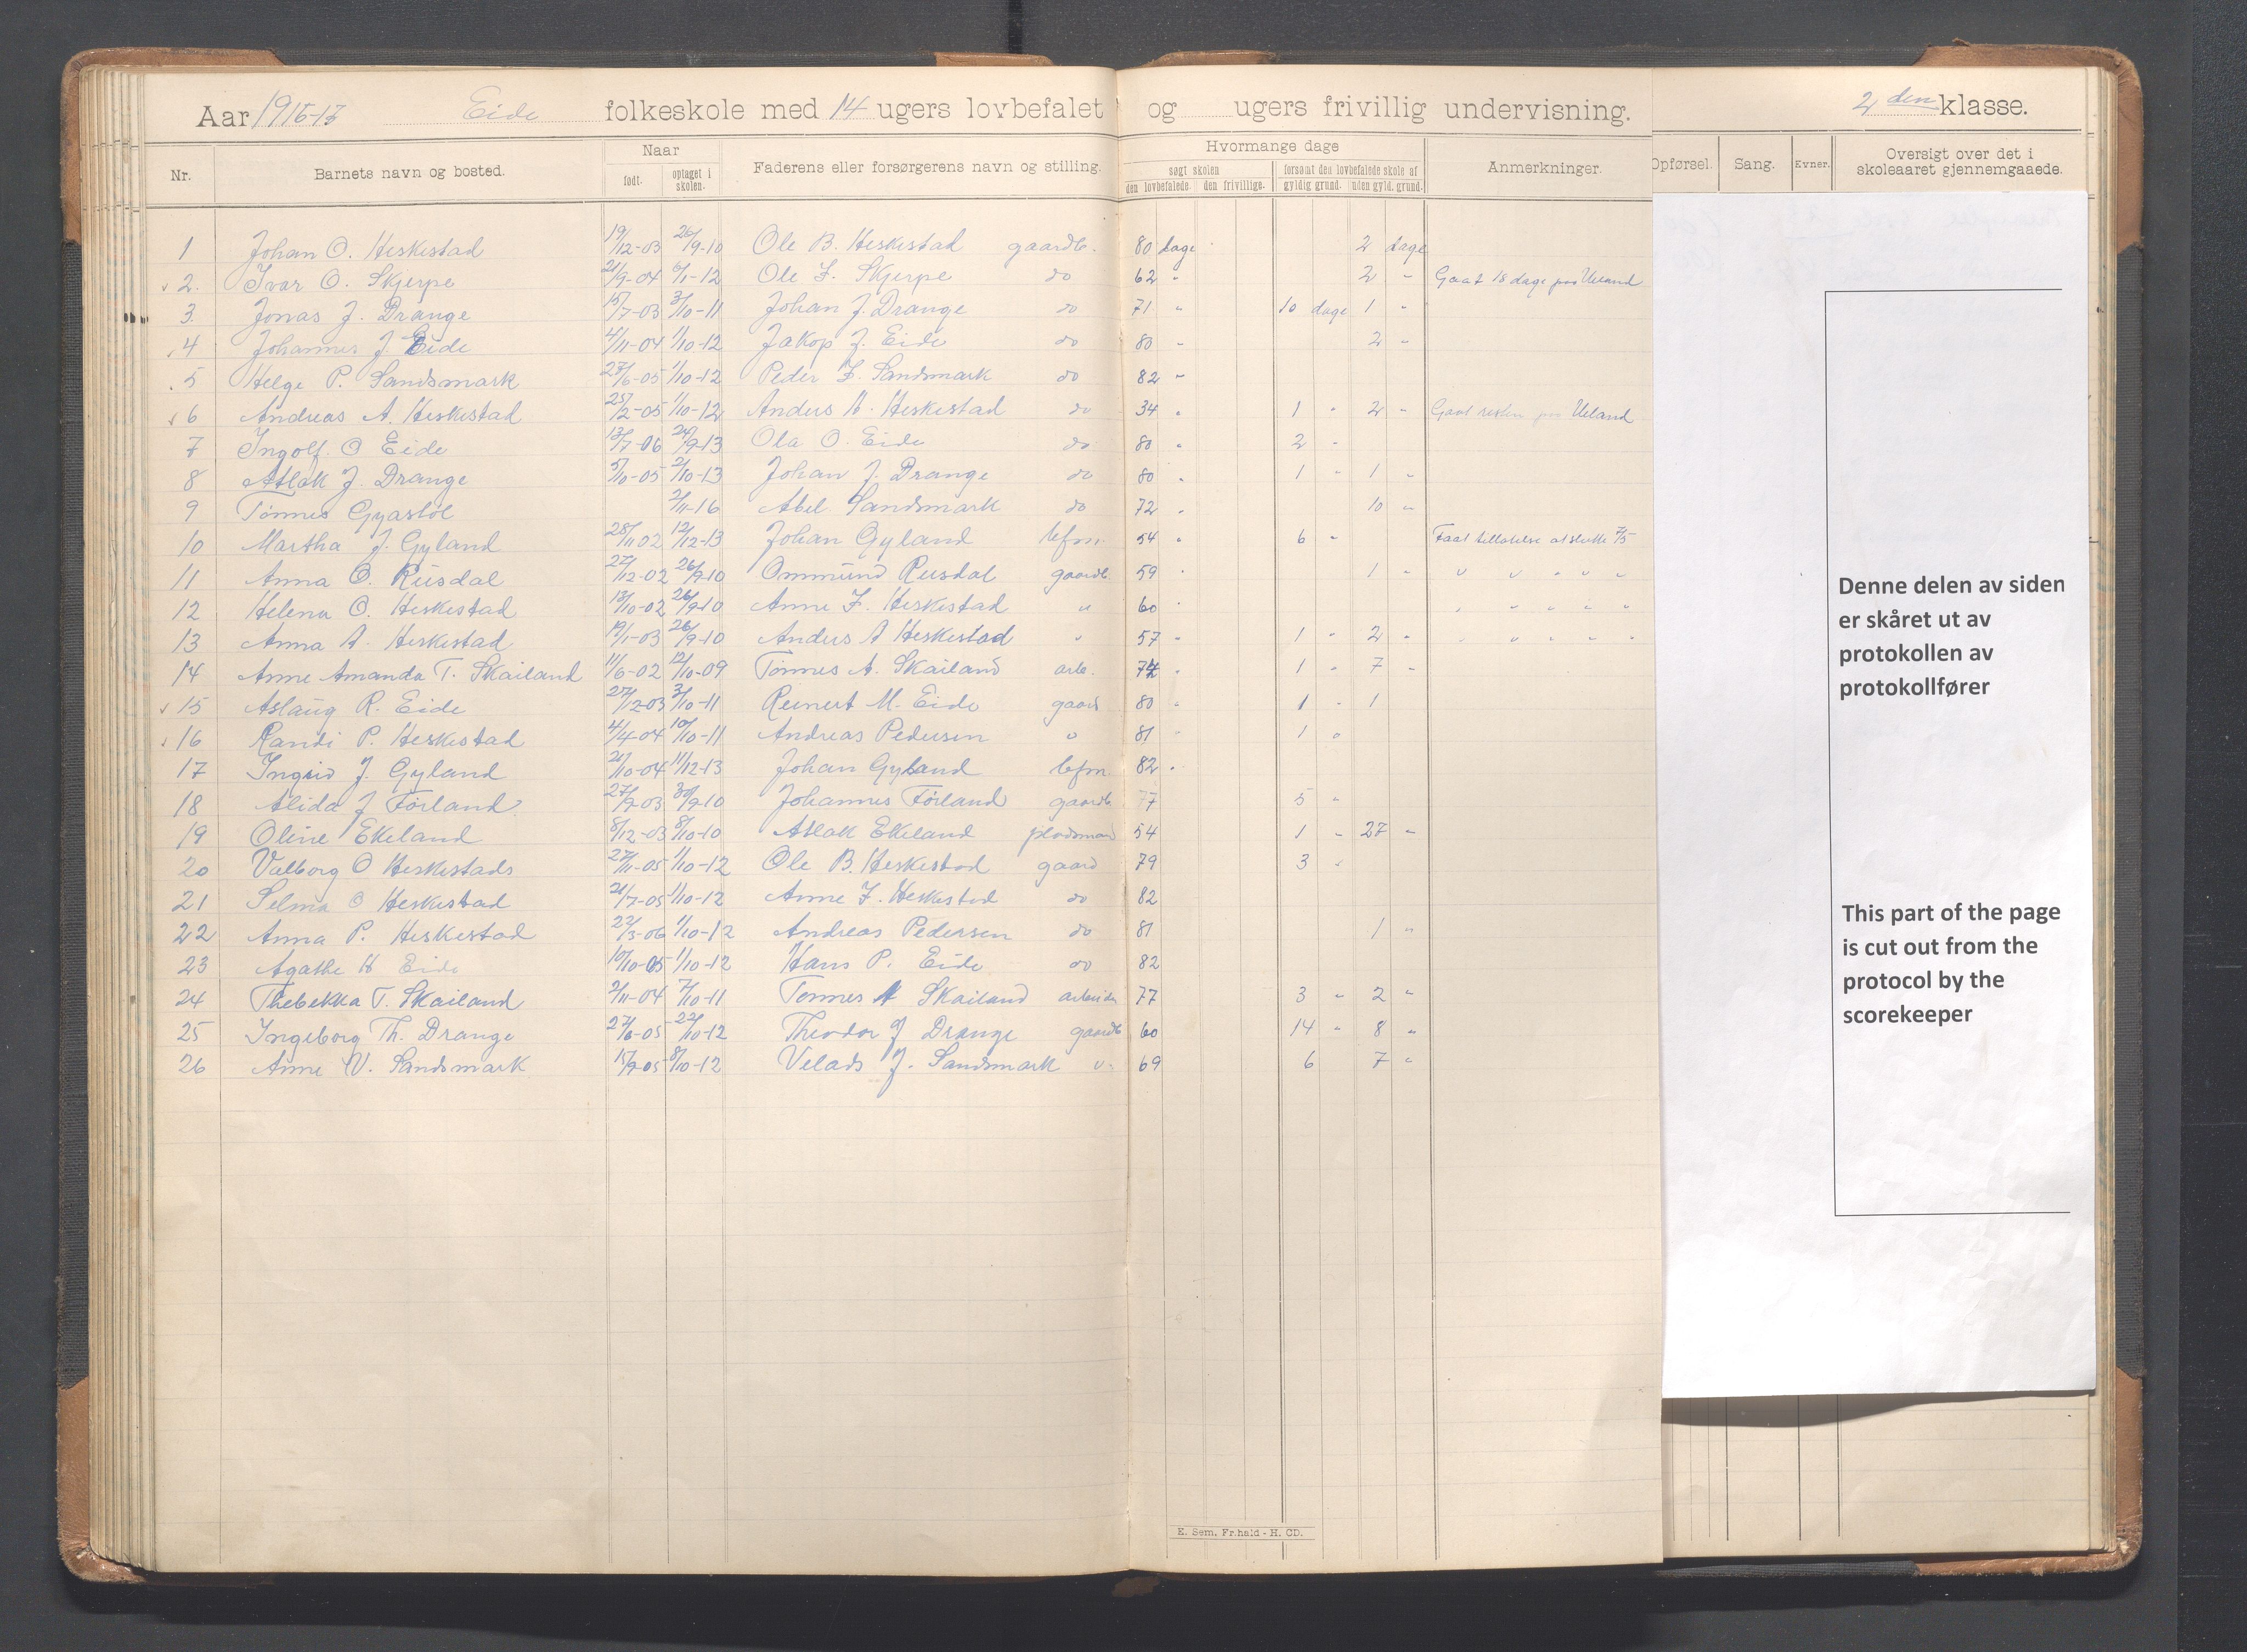 Aar 1916-17 Eide folkeskole med 14 ugers lovbefalet og ugers frivillig undervisning. 2 den klasse.
Nr. Barnets navn og bosted. Naar født. optaget i skolen. Faderens eller forsørgerens navn og stilling. Hvormange dage søgt skolen den lovbefalede. den frivillige. forsømt den lovbefalede skole af gyldig grund. uden gyld. grund. Anmerkninger. Opførsel. Sang. Evner. Oversigt over det i skoleaaret gjennemgaaede.
1 Johan O. Heskestad 19/12-03 26/9-10 Ole B. Heskestad gaardb. 80 dage 2 dage
2. Ivar O. Skjerpe 21/9-04 6/1-12 Ole F. Skjerpe do 62 " 2 " Gaat 18 dage paa Ueland
3. Jonas J. Drange 15/7-03 3/10-11 Johan J. Drange do 71 " 10 dage 1 "
4 Johannes J. Eide 4/11-04 1/10-12 Jakop J. Eide do 80 " 2 "
5 Helge P. Sandsmark 27/6-05 1/10-12 Peder F. Sandsmark do 82 "
6 Andreas A. Heskestad 25/2-05 1/10-12 Anders A. Heskestad do 34 " 1 " 2 " Gaat resten paa Ueland
7 Ingolf O Eide 13/7-06 24/9-13 Ola O. Eide do 80 " 2 "
8 Atlak J. Drange 5/10-05 2/10-13 Johan J. Drange do 80 " 1 " 1 "
9 Tønnes Gyastøl 2/11-16 Abel Sandsmark do 72 " 10 "
10 Martha J. Gyland 28/11 02 12/12-13 Johan Gyland lefm. 54 " 6 " Faat tillatelse at slutte 7/5
11 Anna O. Rusdal 27/12-02 26/9-10 Ommund Rusdal gaardb. 59 " 1 " " " " " "
12 Helena O. Heskestad 13/10-02 26/9-10 Anne F. Heskestad " 60 " " " " " "
13 Anna A. Heskestad 19/1-03 26/9-10 Anders A Heskestad " 57 " 1 " 2 " " " " " "
14 Anne Amanda T. Skailand 11/6-02 12/10-09 Tønnes A. Skailand arb. 74 " 1 " 7 "
15 Aslaug R. Eide 27/12-03 3/10-11 Reinert M. Eide gaard 80 " 1 " 1
16 Randi P. Heskestad 4/4-04 10/10-11 Andreas Pedersen " 81 " 1 "
17 Ingrid J. Gyland 21/10-04 11/12-13 Johan Gyland lefm. 82 "
18 Alida J Førland 27/9-03 30/9-10 Johannes Førland gaardb 77 5 "
19 Oline Ekeland 8/12-03 8/10-10 Atlak Ekeland pladsmand 54 1 " 27 "
20 Valborg O Heskestads 27/11-05 1/10-12 Ole B. Heskestad gaard 79 3 "
21 Selma O Heskestad 21/7-05 1/10-12 Anne F. Heskestad do 82
22 Anna P. Heskestad 22/3-06 1/10-12 Andreas Pedersen do 81 1 "
23 Agathe H Eide 10/10-05 1/10-12 Hans P. Eide do 82
24 Thebekka T. Skailand 2/11-04 7/10-11 Tønnes A Skailand arbeider 77 3 " 2 "
25 Ingeborg Th. Drange 27/6-05 22/10-12 Theodor J Drange gaardb 60 14 " 8 "
26 Anne V. Sandsmark 15/9-05 8/10-12 Velads J. Sandsmark " 69 6 7 "
E. Sem, Fr.hald - H. CD.
Denne delen av siden
er skåret ut av
protokollen av
protokollfører
This part of the page
is cut out from the
protocol by the
scorekeeper